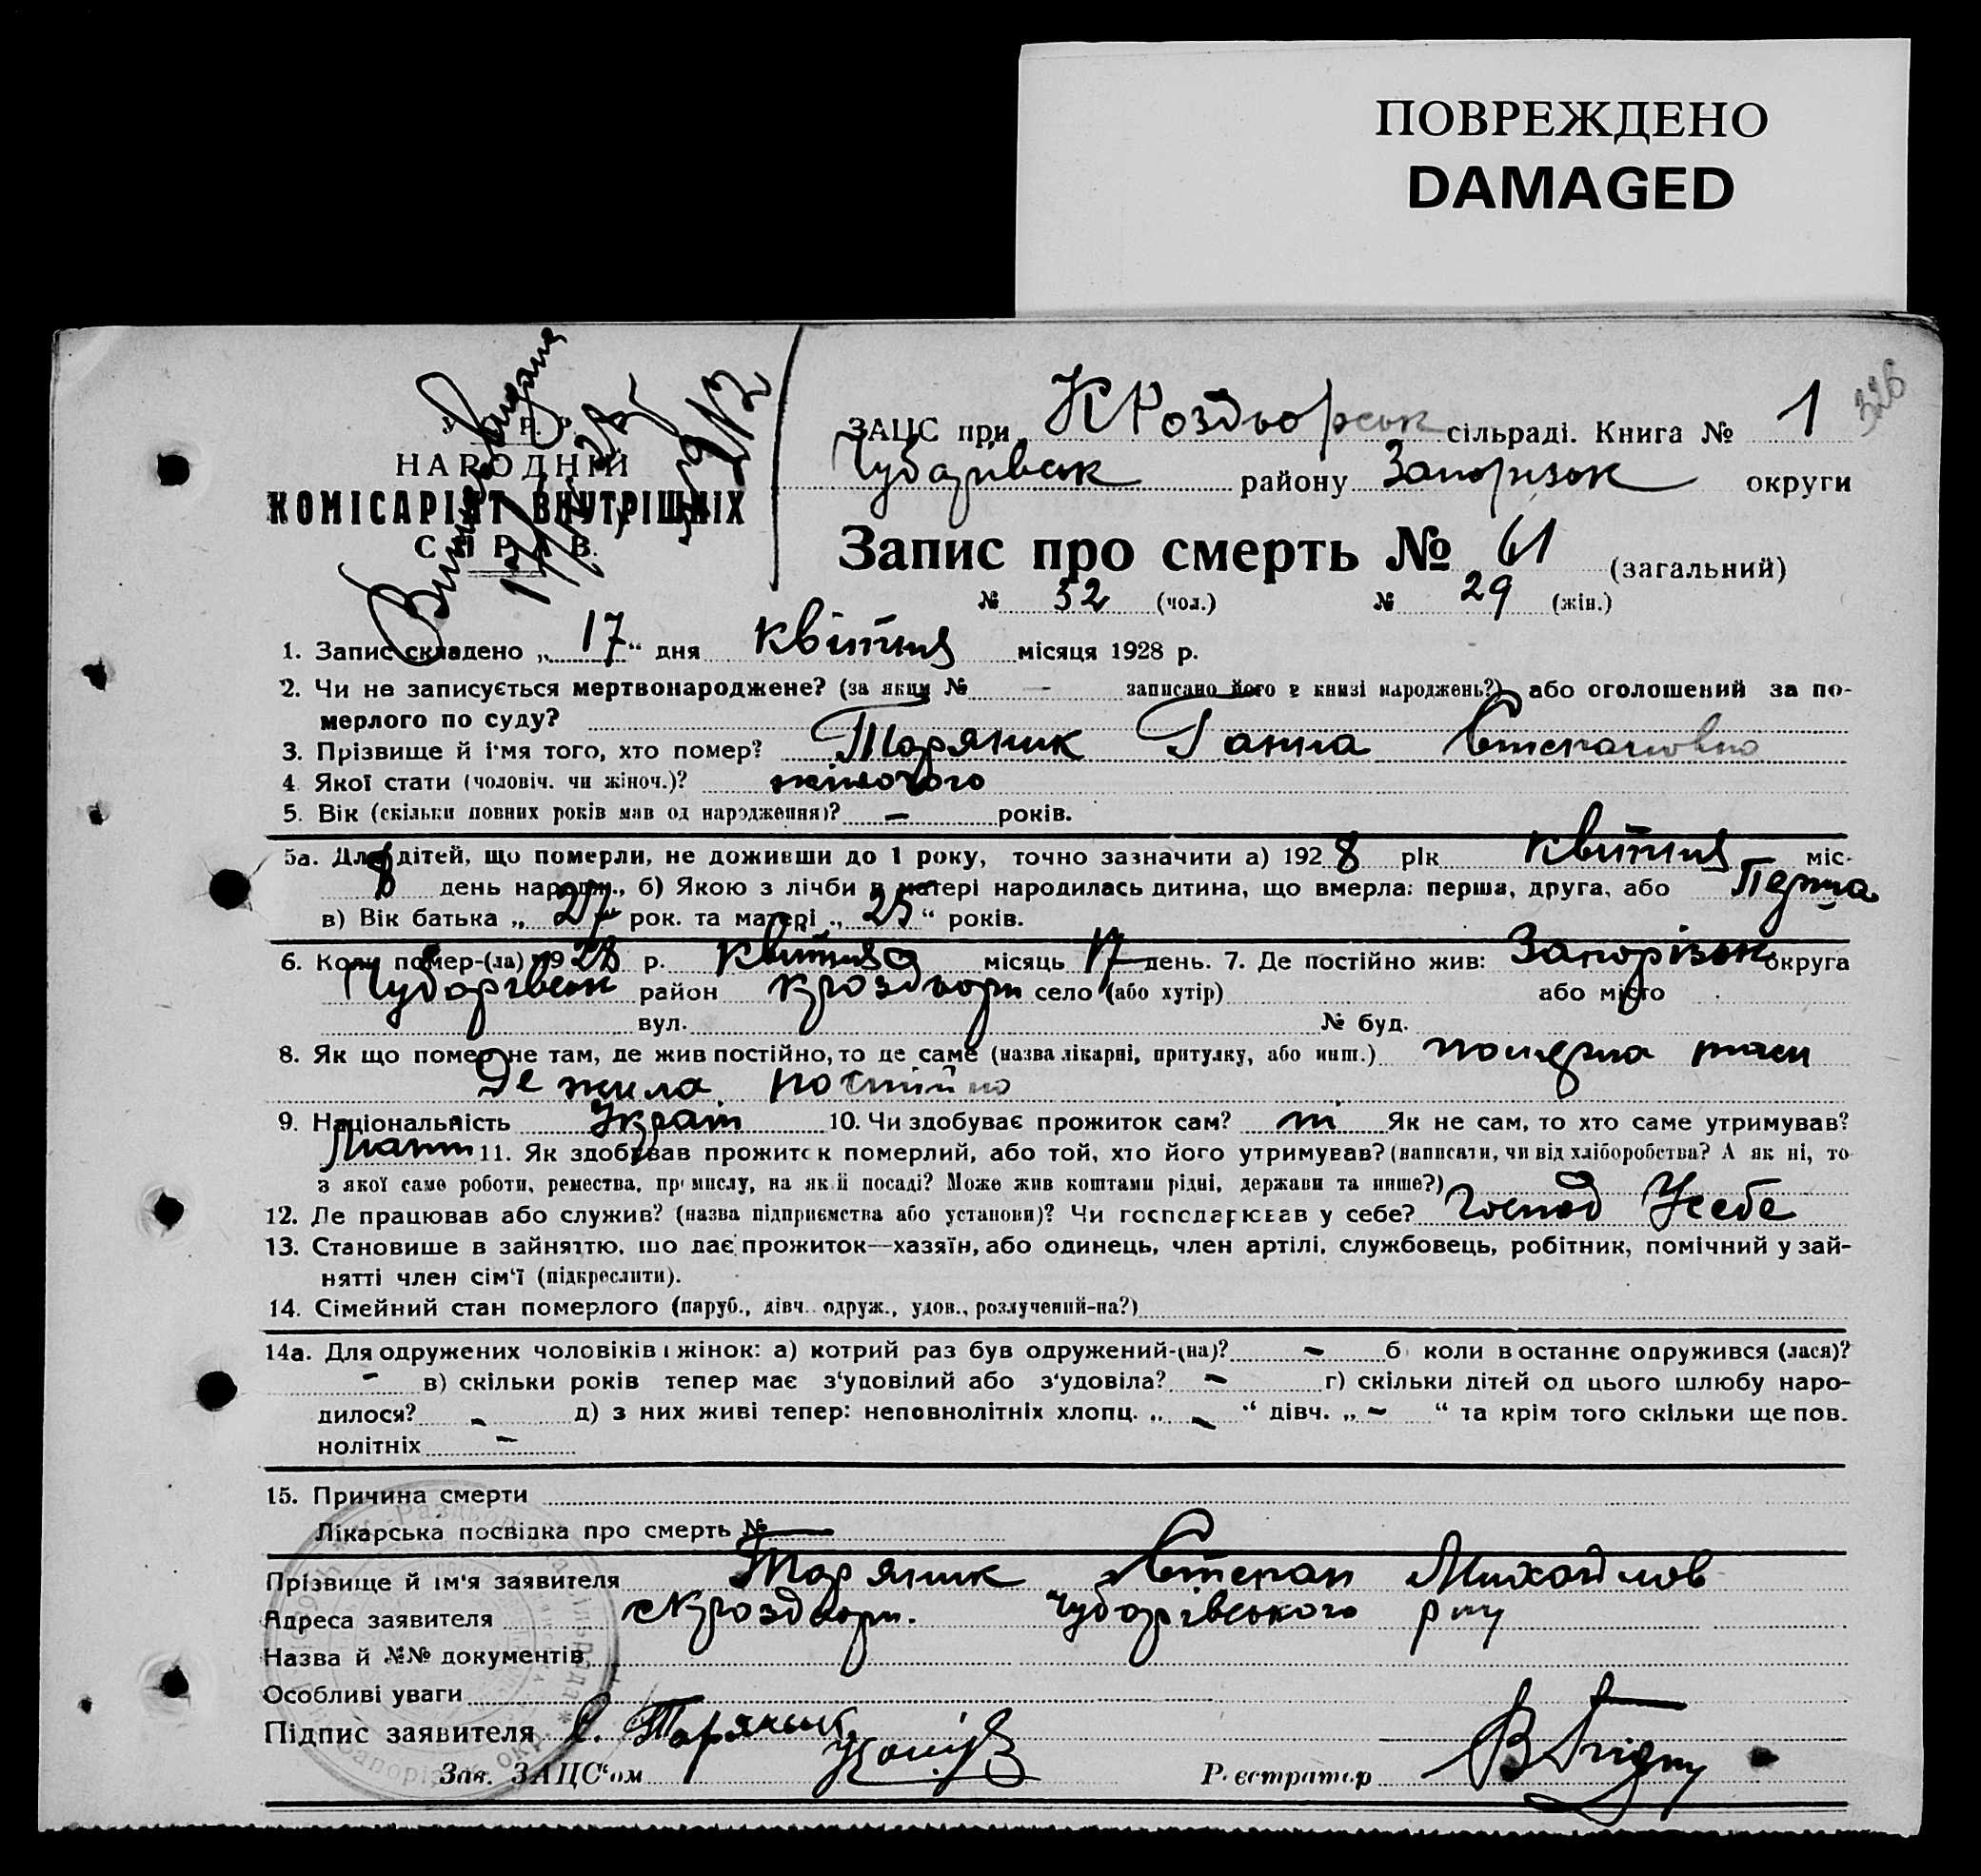 ПОВРЕЖДЕНО
DAMAGED
326
У. С. Р. Р.
НАРОДНІЙ
КОМІСАРІЯТ ВНУТРІШНІХ
СПРАВ.
ЗАЦС при К Роздьорськ сільраді. Книга № 1
Чубарівськ району Запорізьк округи
Запис про смерть № 61 (загальний)
№ 32 (чол.) № 29 (жін.)
1. Запис складено „ 17 “ дня квітня місяця 1928 р.
2. Чи не записується мертвонароджене? (за яким № - записано його в книзі народжень?) або оголошений за по-
мерлого по суду?
3. Прізвище й ім'я того, хто помер? Таряник Ганна Степановна
4. Якої стати (чоловіч. чи жіноч.)? жіночого
5. Вік (скільки повних років мав од народження)? - років.
5а. Для дітей, що померли, не доживши до 1 року, точно зазначити а) 192 8 рік квітня міс-
8 день народж., б) Якою з лічби в матері народилась дитина, що вмерла: перша, друга, або Перша
в) Вік батька „ 27 рок. та матері „ 25 “ років.
6. Коли помер-(ла) 1928 р. квітня місяць 17 день. 7. Де постійно жив: Запорізьк округа
Чубарівськ район Кроздьори село (або хутір) або місто
вул. № буд.
8. Як що помер не там, де жив постійно, то де саме (назва лікарні, притулку, або инш.) померла там
Де жила постійно
9. Національність Україн 10. Чи здобуває прожиток сам? ні Як не сам, то хто саме утримував?
11. Як здобував прожиток померлий, або той, хто його утримував? (написати, чи від хліборобства? А як ні, то
з якої саме роботи, ремества, промислу, на якій посаді? Може жив коштами рідні, держави та инше?)
12. Де працював або служив? (назва підприємства або установи)? Чи господарював у себе? Господ Усебе
13. Становище в зайняттю, що дає прожиток—хазяїн, або одинець, член артілі, службовець, робітник, помічний у зай-
нятті член сім'ї (підкреслити).
14. Сімейний стан померлого (паруб., дівч. одруж., удов., розлучений-на?)
14а. Для одружених чоловіків і жінок: а) котрий раз був одружений-(на)? - б коли в останнє одружився (лася)?
- в) скільки років тепер має з'удовілий або з'удовіла? - г) скільки дітей од цього шлюбу наро-
дилося? - д) з них живі тепер: неповнолітніх хлопц. „ - “ дівч. „ - “ та крім того скільки ще пов.
нолітніх -
15. Причина смерти
Лікарська посвідка про смерть № —
Прізвище й ім'я заявителя Таряник Степан Михайлов
Адреса заявителя с Кроздьори. Чубарівського р ну
Назва й №№ документів
Особливі уваги
Підпис заявителя С. Таряник
Зав. ЗАЦС'ом Реєстратор